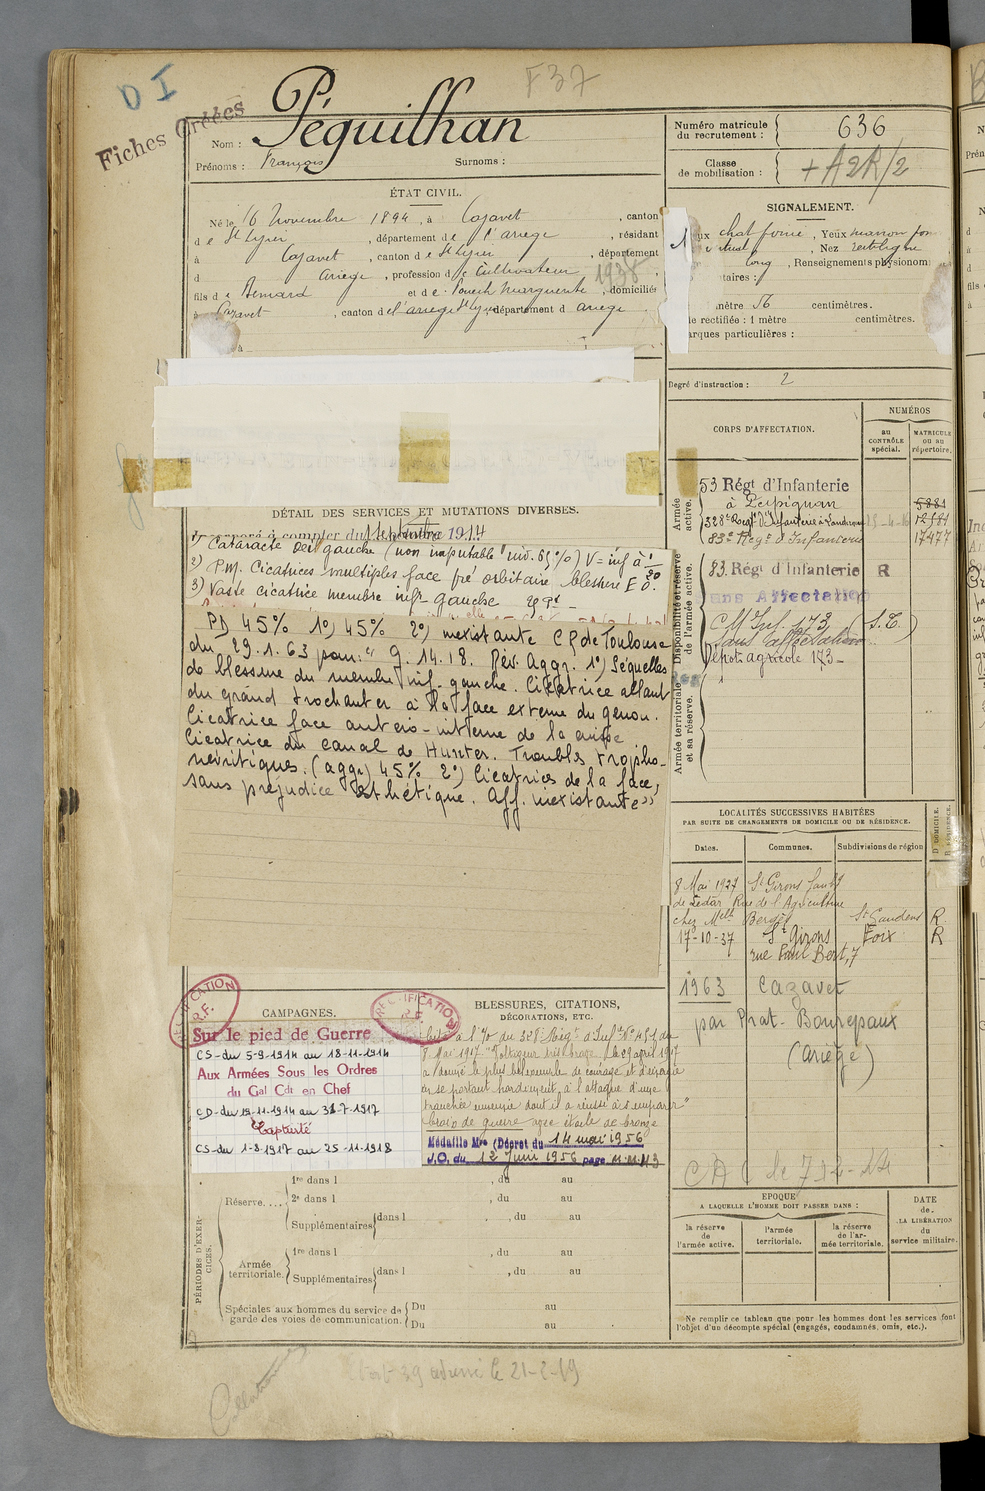 D I
F37
Fiches Créées
Nom : Péguilhan
Prénoms : François Surnoms :
Numéro matricule du recrutement : 636
Classe de mobilisation : + A2R/2
ÉTAT CIVIL.
Né le 16 Novembre 1894, à Cazavet, canton
de St Lizier, département de l'Ariège, résidant
à Cazavet, canton de St Lizier, département
d Ariège, profession de Cultivateur
1938
fils de Bernard et de Pouech Marguerite, domiciliés
à Cazavet, canton de St Lizier département d Ariège
à
SIGNALEMENT.
ux chat foncé, Yeux marron fon
Nez rectiligne
long, Renseignements physionom
taires :
mètre 56 centimètres.
le rectifiée : 1 mètre centimètres.
arques particulières :
Degré d'instruction : 2
CORPS D'AFFECTATION.
NUMÉROS
au CONTRÔLE spécial.
MATRICULE ou au répertoire.
Armée active.
53 Régt d'Infanterie
à Perpignan 5881
328e Regt d'Infanterie 15-4-16 12581
83e Regt d'Infanterie 17477
Disponibilité et réserve de l'armée active.
83. Régt d'Infanterie R
Sans Affectation
CM Inf. 173 S.E.
Sans affectation
Dépôt agricole 173
Armée territoriale et sa réserve.
DÉTAIL DES SERVICES ET MUTATIONS DIVERSES.
à compter du 1 Septembre 1914
1) Cataracte oeil gauche (non imputable inv. 65%) V = inf à 1/20
2) P.M. Cicatrices multiples face pré orbitaire blessure E O.
3) Vaste cicatrice membre infr gauche
PD 45% 1°) 45% 2°) inexistante CR de Toulouse
du 29.1.63 pour: "G. 14.18. Rév. Aggr. 1°) Séquelles
de blessure du membre inf. gauche. Cicatrice allant
du grand trochanter à la face externe du genou.
Cicatrice face antero-interne de la cuisse
Cicatrice du canal de Hunter. Troubles tropho-
nevritiques. (aggr) 45% 2°) Cicatrices de la face,
sans préjudice esthétique. Aff. inexistante"
LOCALITÉS SUCCESSIVES HABITÉES
PAR SUITE DE CHANGEMENTS DE DOMICILE OU DE RÉSIDENCE.
Dates. Communes. Subdivisions de région
D DOMICILE. R RÉSIDENCE.
8 Mai 1927 St Girons
Rue de l'Agriculture
chez Melle Bergès St Gaudens R
17-10-37 St Girons Foix R
rue Paul Bert, 7
1963 Cazavet
par Prat-Bonrepaux
(Ariège)
RECTIFICATION R.F.
RECTIFICATION R.F.
CAMPAGNES.
Sur le pied de Guerre
CS-du 5-9-1914 au 18-11-1914
Aux Armées Sous les Ordres
du Gal Cdt en Chef
CD-du 19-11-1914 au 31-7-1917
Captivité
CS-du 1-8-1917 au 25-11-1918
BLESSURES, CITATIONS,
DÉCORATIONS, ETC.
Cité à l'O. du 328e Régt d'Inf
8 Mai 1917 "Voltigeur très brave, le 29 avril 1917
a donné le plus bel exemple de courage et d'énergie
en se portant hardiment à l'attaque d'une
tranchée ennemie dont il a réussi à s'emparer"
Croix de guerre avec étoile de bronze
Médaille Mre (Décret du 14 mai 1956
J.O. du 12 Juin 1956 page
PÉRIODES D'EXERCICES.
Réserve....
1re dans l , du au
2e dans l , du au
Supplémentaires dans l , du au
Armée territoriale.
1re dans l , du au
Supplémentaires dans l , du au
Spéciales aux hommes du service de garde des voies de communication.
Du au
Du au
EPOQUE
A LAQUELLE L'HOMME DOIT PASSER DANS :
la réserve de l'armée active.
l'armée territoriale.
la réserve de l'armée territoriale.
DATE de LA LIBÉRATION du service militaire.
Ne remplir ce tableau que pour les hommes dont les services font
l'objet d'un décompte spécial (engagés, condamnés, omis, etc.).
39 adressé le 21-2-19